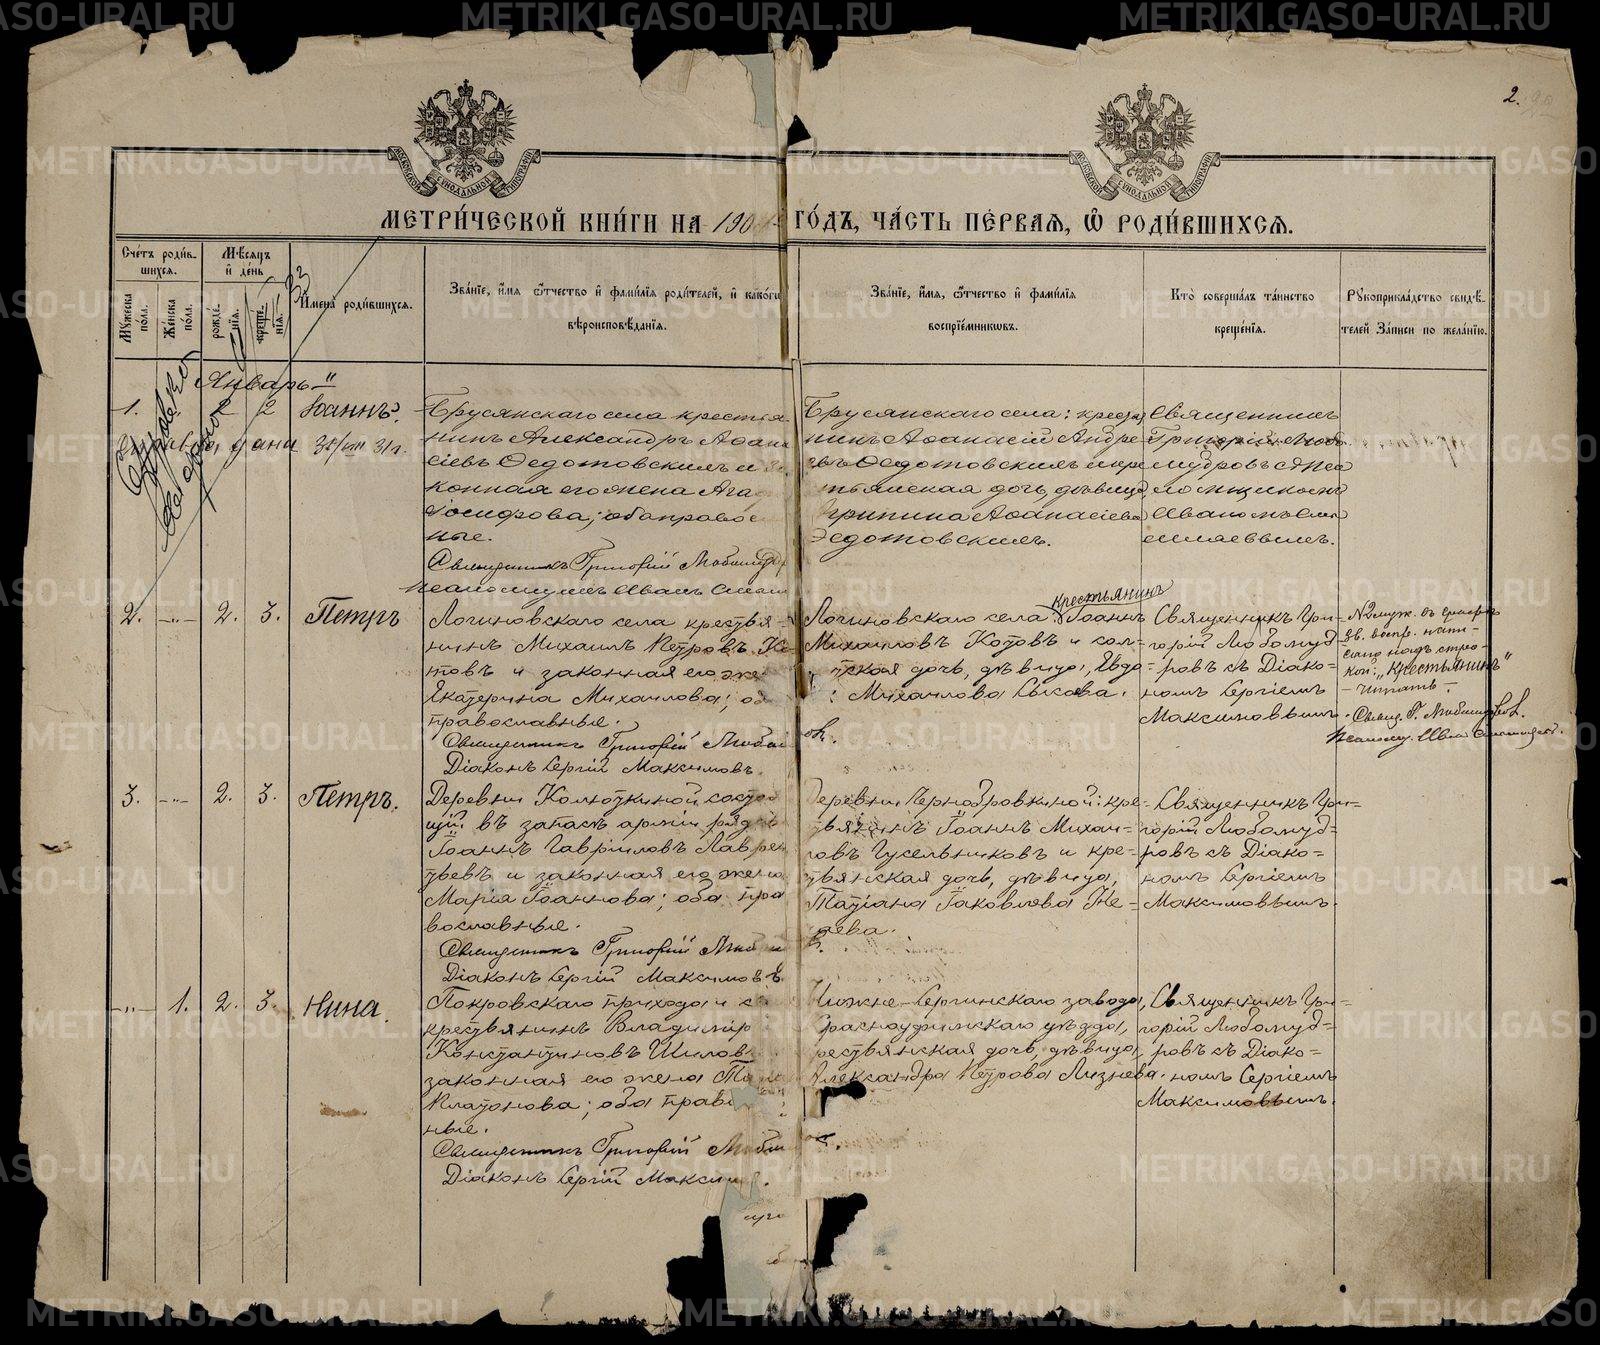 2.
МОСКОВСКОЙ СУНОДАЛЬНОЙ ТИПОГРАФІИ
МОСКОВСКОЙ СУНОДАЛЬНОЙ ТИПОГРАФІИ
МЕТРИ́ЧЕСКОЙ КНИ́ГИ НА 190 ГО́ДЪ, ЧА́СТЬ ПЕ́РВАѦ, Ѽ РОДИ́ВШИХСѦ.
Сче́тъ роди́в-
шихсѧ.
Мꙋжеска по́ла.
Же́нска по́ла.
Мѣ́сѧцъ
и҆ де́нь
рожде́-
нїѧ.
креще́-
нїѧ.
И҆мена̀ роди́вшихсѧ.
Зва́нїе, и҆́мѧ ѻ҆́тчество и҆ фами́лїѧ роди́телей, и҆ како́гѡ
вѣроисповѣ́данїѧ.
Зва́нїе, и҆́мѧ, ѻ҆́тчество и҆ фами́лїѧ
воспрїе́мникѡвъ.
Кто̀ соверша́лъ та́инство
креще́нїѧ.
Рꙋкоприкла́дство свидѣ́-
телей За́писи по жела́нїю.
Январь
1. 2 2 Іоаннъ.
Брусянскаго села крестья
нинъ Александръ Аѳана
сіевъ Ѳедотовскихъ и за
конная его жена Ага
Іосифова; оба православ
ные.
Священникъ Григорій Любомудр
Псаломщикъ Иванъ
Брусянскаго села: крестья
нинъ Аѳанасій Андре
евъ Ѳедотовскихъ и кре
стьянская дочь, дѣвица
Агрипина Аѳанасіева
Ѳедотовскихъ.
Священникъ
Григорій Любо
мудровъ с Пса
ломщикомъ
Иваномъ
2. -"- 2. 3. Петръ
Логиновскаго села крестья-
нинъ Михаилъ Петровъ Ко
товъ и законная его жена
Екатерина Михаилова; оба
православные.
Священникъ Григорій Любом
Діаконъ Сергій Максимовъ.
крестьянинъ
Логиновскаго села Іоаннъ
Михаиловъ Котовъ и сол-
тская дочь, дѣвица, Евдо-
: Михаилова Сысова.
Священникъ Гри-
горій Любомуд-
ровъ съ Діако-
номъ Сергіемъ
Максимовымъ.
№ 2 муж. въ графѣ
зв. воспр. напи-
сано надъ стро-
кой: „Крестьянинъ"
- читать -.
Свящ. Г. Любомудровъ.
Псаломщ. Иван
3. -"- 2. 3. Петръ.
Деревни Колюткиной состоя
щій въ запасѣ арміи рядов
Іоаннъ Гавріиловъ Лаврен
тьевъ и законная его жена
Марія Іоаннова; оба пра
вославные.
Священникъ Григорій Любом
Діаконъ Сергій Максимовъ
Деревни Чернобровкиной: кре-
стьянинъ Іоаннъ Михаи-
ловъ Гусельниковъ и кре-
стьянская дочь, дѣвица,
Татіана Іаковлева Не-
аева.
Священникъ Гри-
горій Любомуд-
ровъ съ Діако-
номъ Сергіемъ
Максимовымъ.
-"- 1. 2. 3. Нина.
Покровскаго прихода и с
крестьянинъ Владимір
Константиновъ Шилов
законная его жена
Платонова; оба прав
ные.
Священникъ Григорій Любом
Діаконъ Сергій Максимов.
Нижне-Сергинскаго завода,
Красноуфимскаго уѣзда,
крестьянская дочь, дѣвица,
Александра Петрова Лизнева.
Священникъ Гри-
горій Любомуд-
ровъ съ Діако-
номъ Сергіемъ
Максимовымъ.
METRIKI.GASO-URAL.RU